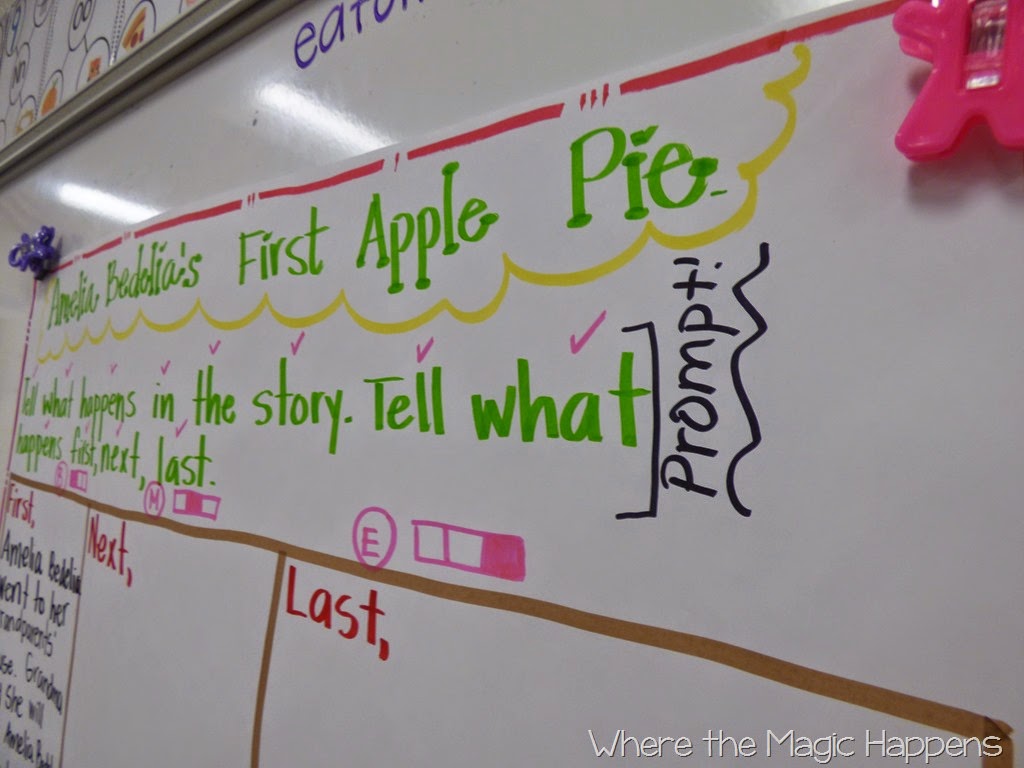 eaton
Amelia Bedelia's First Apple Pie
Tell what happens in the story. Tell what
happens first, next, last.
Prompt!
B
M
E
First,
Amelia Bedelia
went to her
grandparents'
Grandma
she will
Amelia
Next,
Last,
Where the Magic Happens